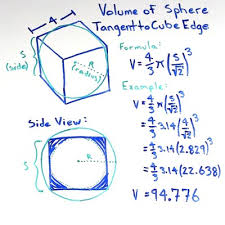 Volume of Sphere
Tangent to Cube Edge
4
S
(side)
R
(radius)
Formula:
V = 4/3 π (S/√2)³
Example:
V = 4/3 π (S/√2)³
= 4/3 3.14 (4/√2)³
= 4/3 3.14 (2.829)³
= 4/3 3.14 (22.638)
V = 94.776
Side View:
S
R